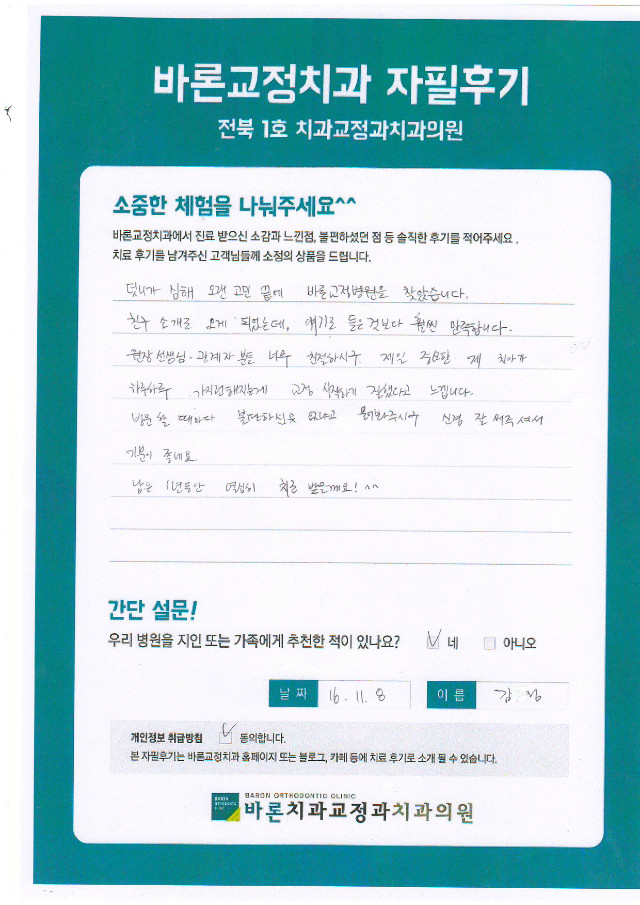 바론교정치과 자필후기
전북 1호 치과교정과치과의원
소중한 체험을 나눠주세요^^
바론교정치과에서 진료 받으신 소감과 느낀점, 불편하셨던 점 등 솔직한 후기를 적어주세요.
치료 후기를 남겨주신 고객님들께 소정의 상품을 드립니다.
덧니가 심해 오랜 고민 끝에 바론교정병원을 찾았습니다.
친구 소개로 오게 되었는데, 얘기로 들은것보다 훨씬 만족합니다.
원장선생님·관계자 분들 너무 친절하시구 제일 중요한 제 치아가
하루하루 가지런해지는게 교정 시작하기 잘했다고 느낍니다.
방문 할 때마다 불편하신곳 없냐고 물어봐주시구 신경 잘 써주셔서
기분이 좋네요
남은 1년동안 열심히 치료 받을께요! ^^
간단 설문!
우리 병원을 지인 또는 가족에게 추천한 적이 있나요? 네 아니오
날짜 16. 11. 8 이름
개인정보 취급방침 동의합니다.
본 자필후기는 바론교정치과 홈페이지 또는 블로그, 카페 등에 치료 후기로 소개 될 수 있습니다.
BARON ORTHODONTIC CLINIC
바론치과교정과치과의원